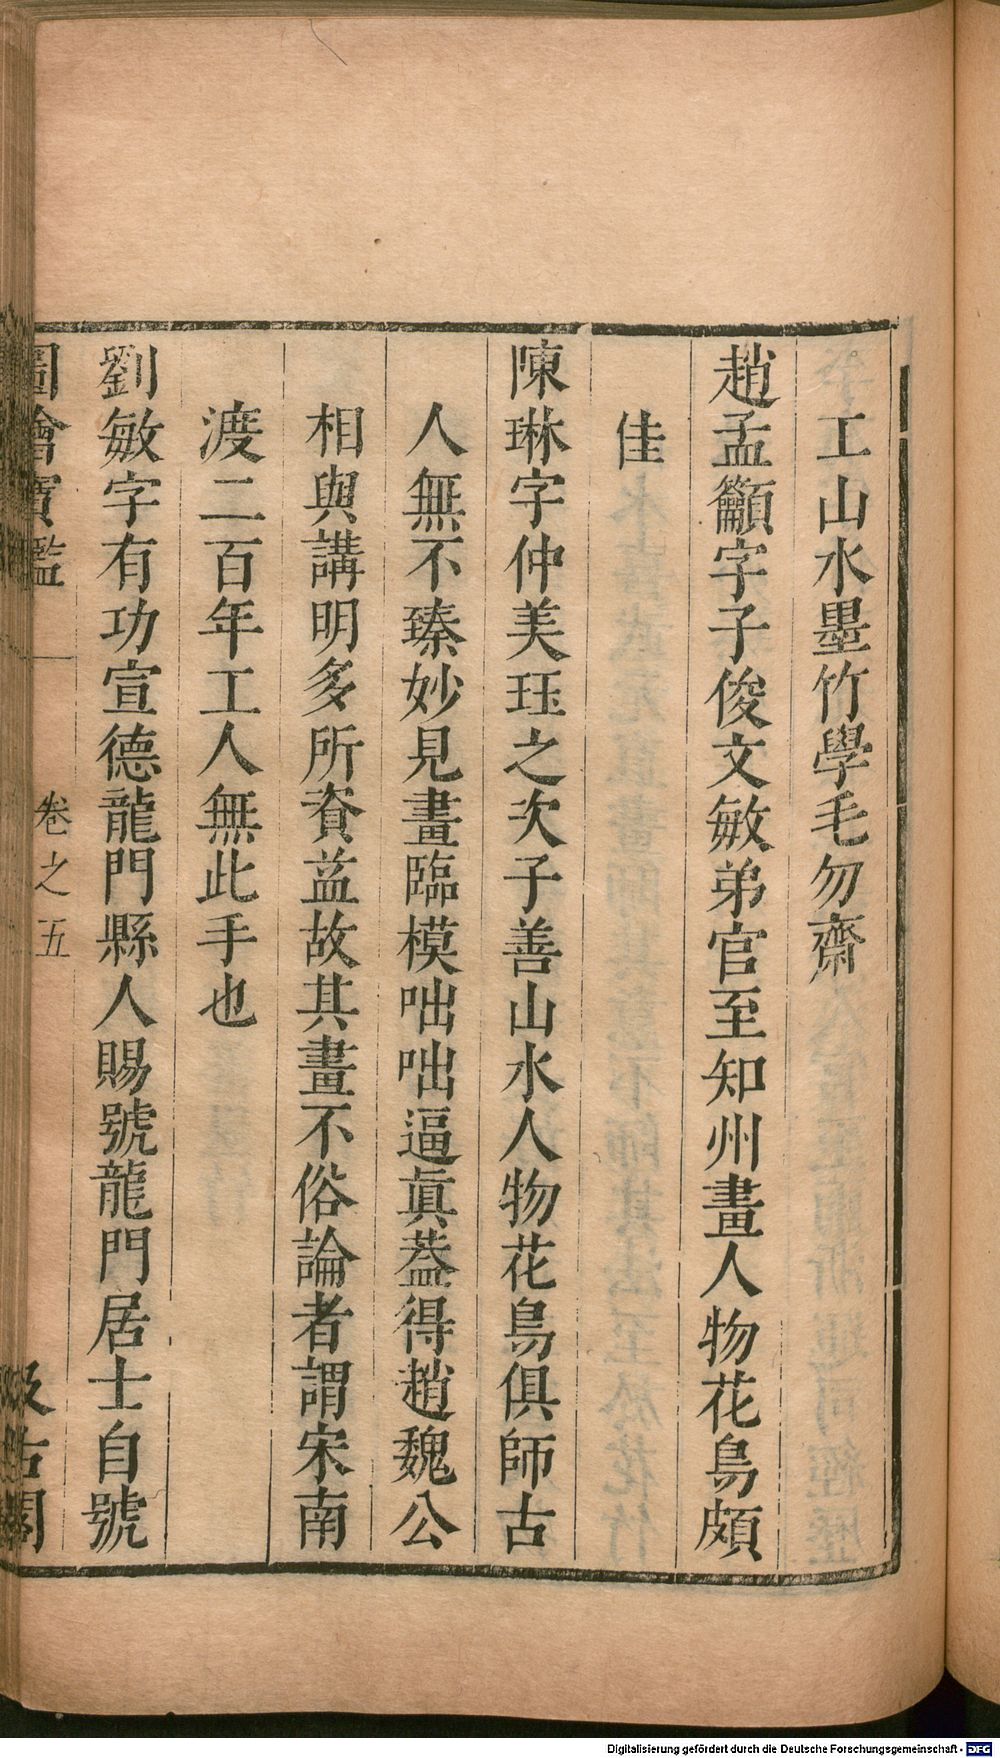 工山水墨竹學毛勿齋
趙孟籲字子俊文敏弟官至知州畫人物花鳥頗
佳
陳琳字仲美珏之次子善山水人物花鳥俱師古
人無不臻妙見畫臨模咄咄逼眞葢得趙魏公
相與講明多所資益故其畫不俗論者謂宋南
渡二百年工人無此手也
劉敏字有功宣德龍門縣人賜號龍門居士自號
圖繪寶鑑 卷之五 汲古閣
Digitalisierung gefördert durch die Deutsche Forschungsgemeinschaft - DFG